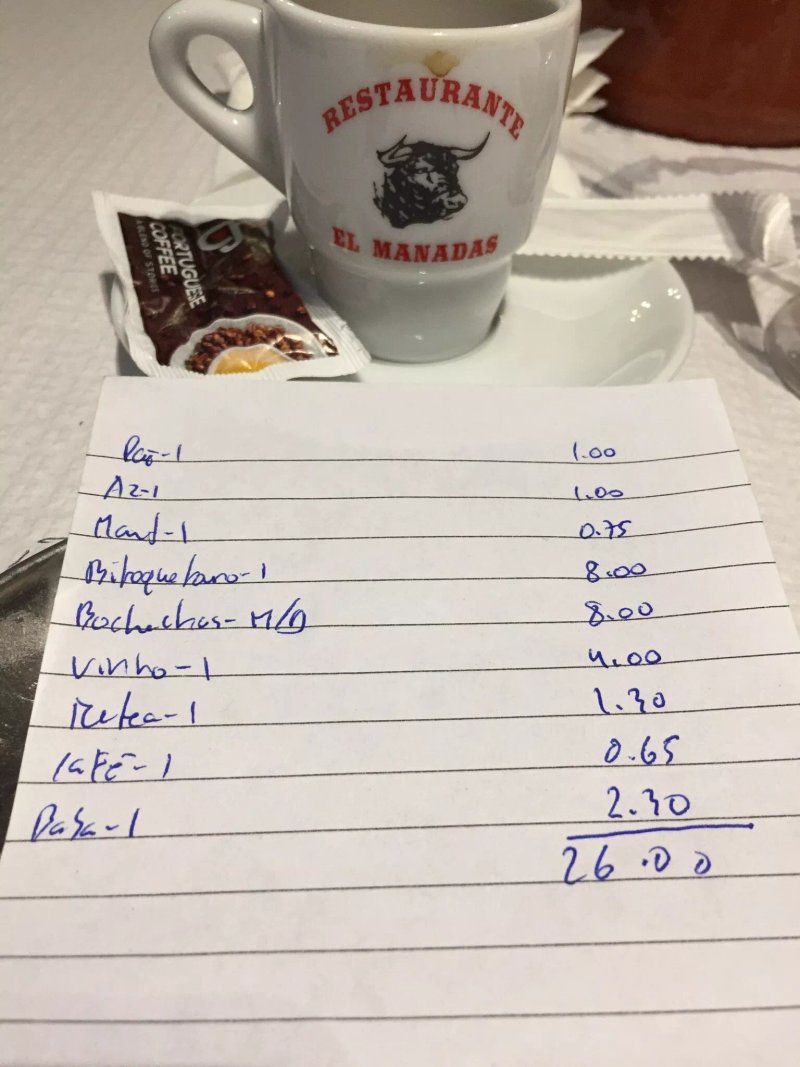 RESTAURANTE
EL MANADAS
PORTUGUESE
COFFEE
A BLEND OF STORIES
Pão-1 1.00
Az-1 1.00
Mant-1 0.75
Bitoque 1 8.00
Bochechas- M/D 8.00
Vinho-1 4.00
1 1.30
Café-1 0.65
1 2.30
26.00